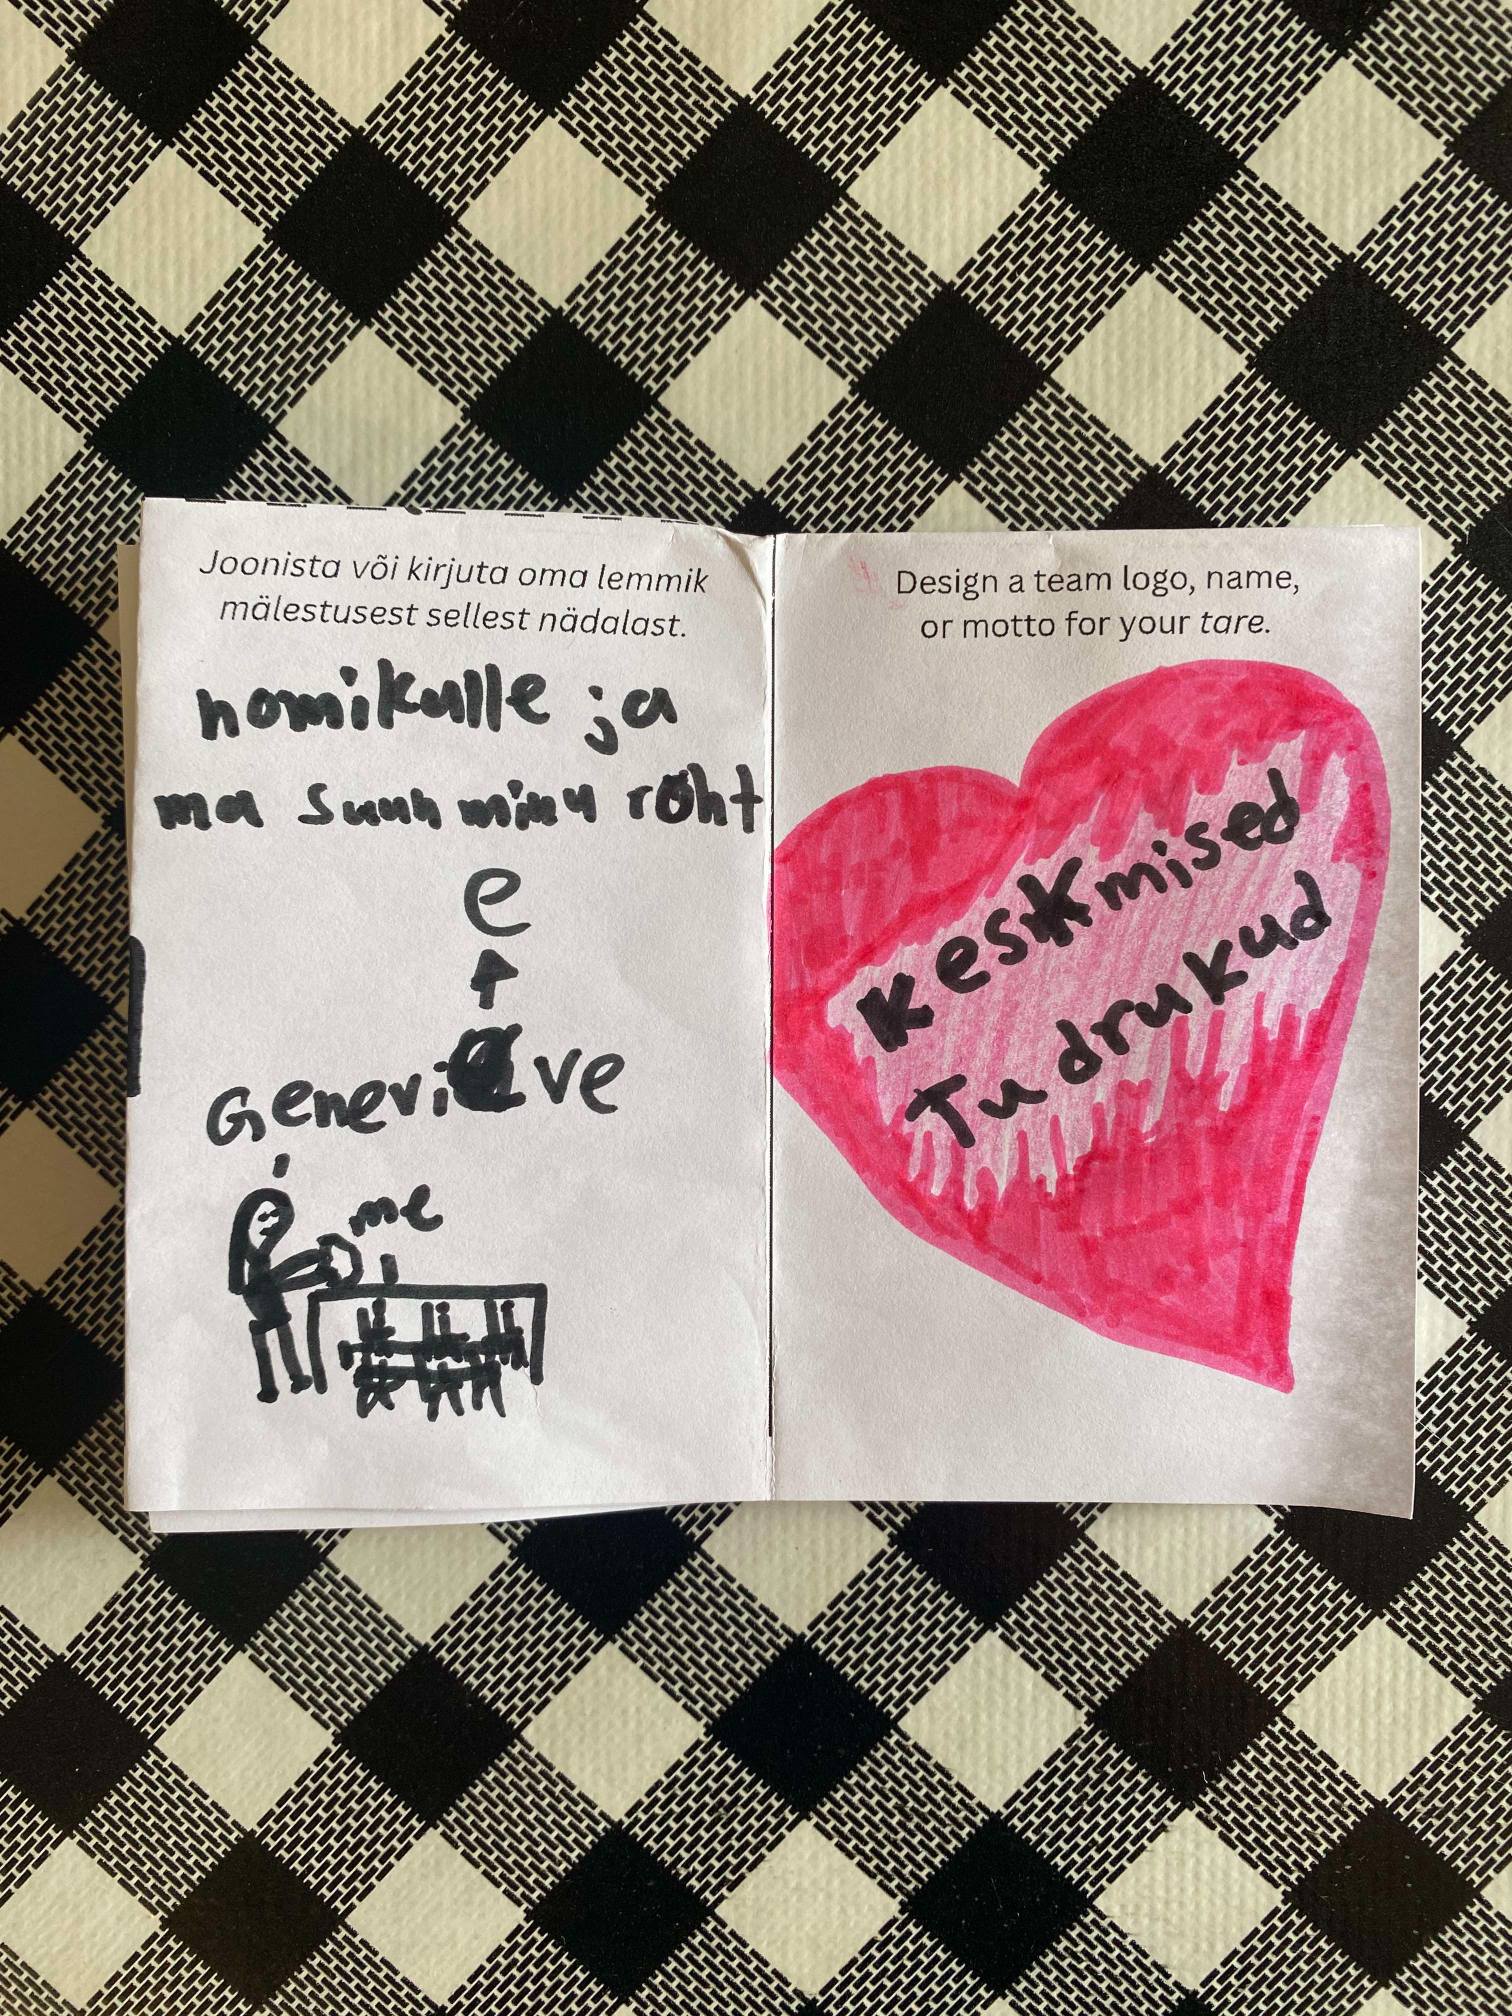 Joonista või kirjuta oma lemmik
mälestusest sellest nädalast.
homikulle ja
ma suun minu röht
e
+
Genevieve
me
Design a team logo, name,
or motto for your tare.
Keskmised
Tudrukud